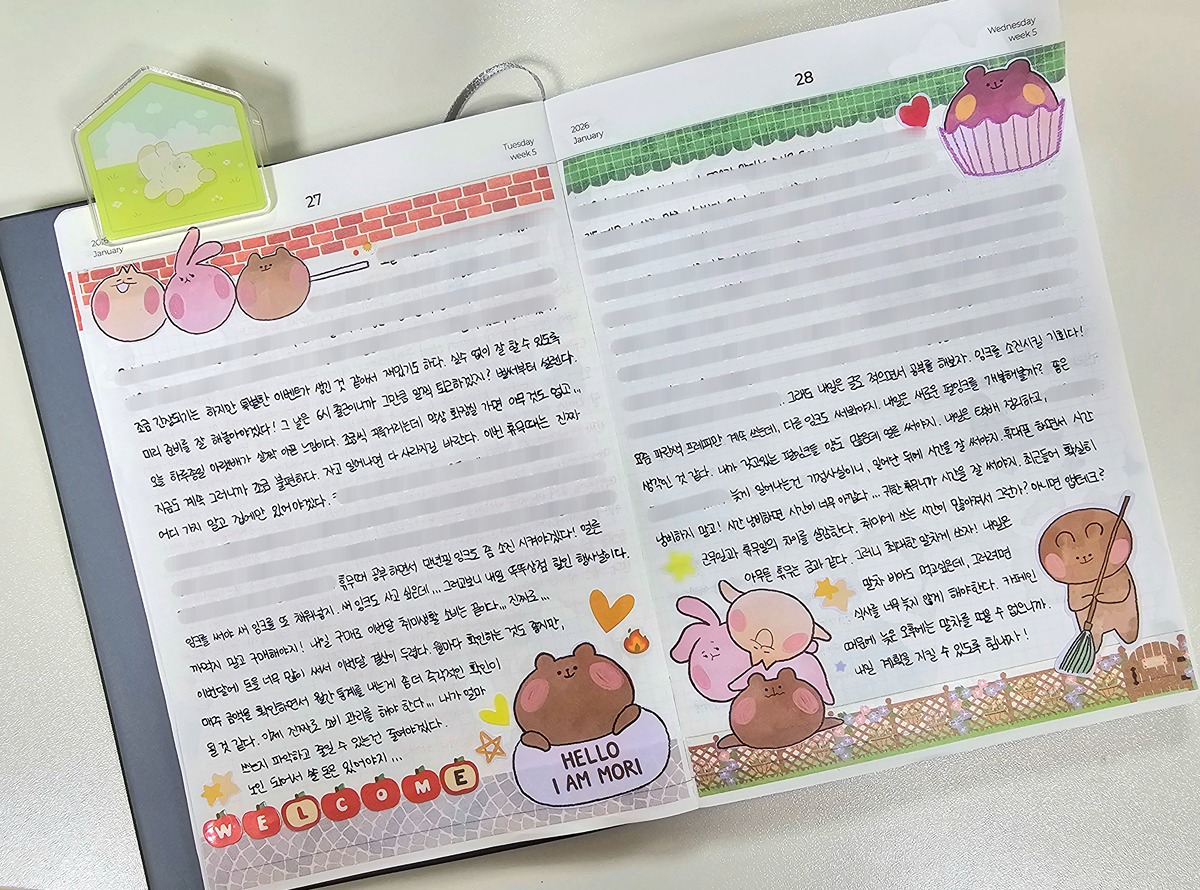 2026
January
27
Tuesday
week 5
조금 긴장되기는 하지만 특별한 이벤트가 생긴 것 같아서 재밌기도 하다. 실수 없이 잘 할 수 있도록
미리 준비를 잘 해놓아야겠다! 그 날은 6시 출근이니까 그만큼 일찍 퇴근하겠지? 벌써부터 설렌다.
오늘 하루종일 아랫배가 살짝 아픈 느낌이다. 조금씩 꾸륵거리는데 막상 화장실 가면 아무것도 없고...
지금도 계속 그러니까 조금 불편하다. 자고 일어나면 다 사라지길 바란다. 이번 휴무때는 진짜
어디 가지 말고 집에만 있어야겠다.
휴무때 공부하면서 만년필 잉크도 좀 소진 시켜야겠다! 얼른
잉크를 써야 새 잉크를 또 채워넣지. 새 잉크도 사고 싶은데... 그러고보니 내일 뚜뚜상점 할인 행사날이다.
까먹지 말고 구매해야지! 내일 구매로 이번달 취미생활 소비는 끝이다... 진짜로...
이번달에 돈을 너무 많이 써서 이번달 결산이 두렵다. 월마다 확인하는 것도 좋지만,
매주 금액을 확인하면서 월간 통계를 내는게 좀 더 즉각적인 확인이
될 것 같다. 이제 진짜로 소비 관리를 해야 한다... 내가 얼마
쓰는지 파악하고 줄일 수 있는건 줄여야겠다.
노인 되어서 쓸 돈은 있어야지...
WELCOME
HELLO
I AM MORI
2026
January
28
Wednesday
week 5
그래도 내일은 글도 적으면서 공부를 해보자. 잉크를 소진시킬 기회다!
요즘 파란색 프레피만 계속 쓰는데, 다른 잉크도 써봐야지. 내일은 새로운 펜잉크를 개봉해볼까? 좋은
생각인 것 같다. 내가 갖고있는 펜잉크들 양도 많은데 얼른 써야지. 내일은 택배 정리하고,
늦게 일어나는건 기정사실이니, 일어난 뒤에 시간을 잘 써야지. 휴대폰 하면서 시간
낭비하지 말고! 시간 낭비하면 시간이 너무 아깝다... 귀한 휴무니까 시간을 잘 써야지. 최근들어 확실히
근무일과 휴무일의 차이를 실감한다. 취미에 쓰는 시간이 많아져서 그런가? 아니면 앱테크?
아무튼 휴무는 금과 같다. 그러니 최대한 알차게 쓰자! 내일은
말차 바아도 먹고싶은데, 그러려면
식사를 너무 늦지 않게 해야한다. 카페인
때문에 늦은 오후에는 말차를 먹을 수 없으니까.
내일 계획을 지킬 수 있도록 힘내자!